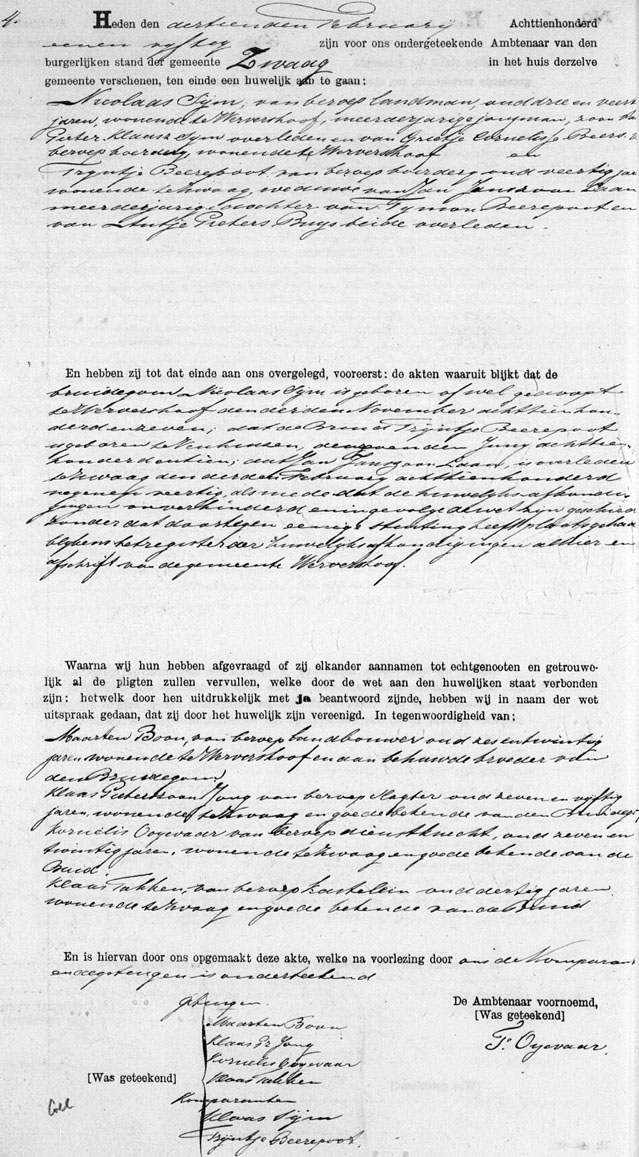 4.
Heden den dertienden Februarij Achttienhonderd
eenen vyftig zijn voor ons ondergeteekende Ambtenaar van den
burgerlijken stand der gemeente Zwaag in het huis derzelve
gemeente verschenen, ten einde een huwelijk aan te gaan:
Nicolaas Sijm, van beroep Landman, oud drie en veert
jaren, wonende te Wervershoof, meerderjarige jongman, zoon van
Pieter Klaasz Sijm overleden en van Grietje Cornelisse Beers, v
beroep boerderij, wonende te Wervershoof en
Tryntje Beerepoot, van beroep boerderij oud veertig jar
wonende te Zwaag, weduwe van Jan Jansz van Laan
meerderjarige dochter van Tymon Beerepoot en
van Antje Pieters Buys beide overleden.
En hebben zij tot dat einde aan ons overgelegd, vooreerst: de akten waaruit blijkt dat de
bruidegom Nicolaas Sijm is geboren of wel gedoopt
te Wervershoof den derden November achttienhon
derd en zeven; dat de Bruid Tryntje Beerepoot
is geboren te Venhuizen, den Juny achttien
honderd en tien; dat Jan Jansz van Laan, is overleden
te Zwaag den derden Februarij achttienhonderd
negenen veertig, als mede dat de huwelijks afkondi
gingen onverhinderd en ingevolge de wet zijn geschied
zonder dat daartegen eenige stuiting heeft plaats gehad
blijkens het register der huwelijks afkondigingen alhier en
afschrift van de gemeente Wervershoof.
Waarna wij hun hebben afgevraagd of zij elkander aannamen tot echtgenooten en getrouwe-
lijk al de pligten zullen vervullen, welke door de wet aan den huwelijken staat verbonden
zijn: hetwelk door hen uitdrukkelijk met ja beantwoord zijnde, hebben wij in naam der wet
uitspraak gedaan, dat zij door het huwelijk zijn vereenigd. In tegenwoordigheid van:
Maarten Boon, van beroep landbouwer oud zes en twintig
jaren, wonende te Wervershoof en aan behuwde broeder van
den Bruidegom,
Klaas Pieterszoon Jong van beroep slagter oud zeven en vijftig
jaren, wonende te Zwaag en goede bekende van den Bruidegom,
Kornelis Ooyevaar van beroep dienstknecht, oud zeven en
twintig jaren, wonende te Zwaag en goede bekende van de
Bruid
Klaas Takken, van beroep kastelein oud dertig jaren
wonende te Zwaag en goede bekende van de Bruid
En is hiervan door ons opgemaakt deze akte, welke na voorlezing door ons de Komparan
en de getuigen is onderteekend
getuigen
De Ambtenaar voornoemd,
[Was geteekend]
Maarten Boon
Klaas Pr Jong
T. Oyevaar.
Kornelis Ooyevaar
[Was geteekend] Klaas Takken
Komparanten
Klaas Sijm
Trijntje Beerepoot.
Coll